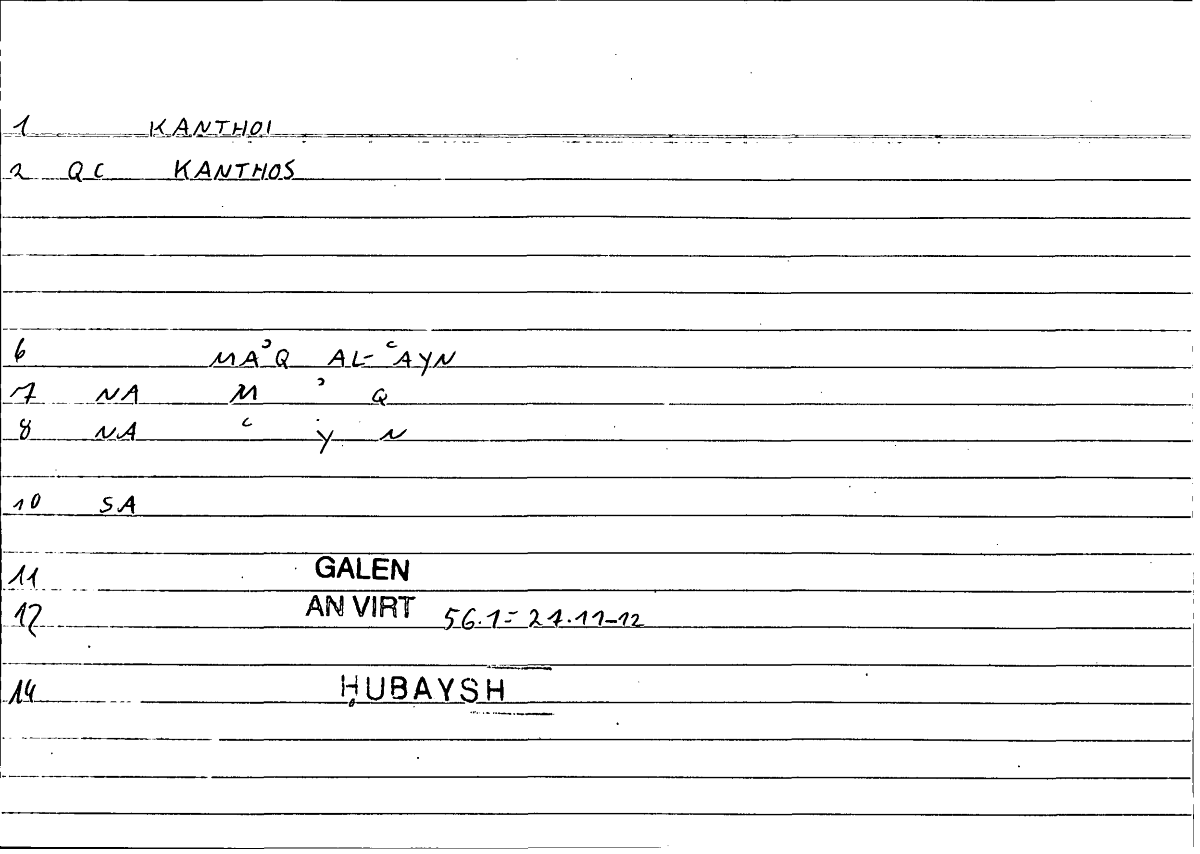 1 KANTHOI
2 QC KANTHOS
6 MAʾQ AL-ʿAYN
7 NA M ʾ Q
8 NA ʿ Y N
10 SA
11 GALEN
12 AN VIRT 56.1=27.11-12
14 ḤUBAYSH